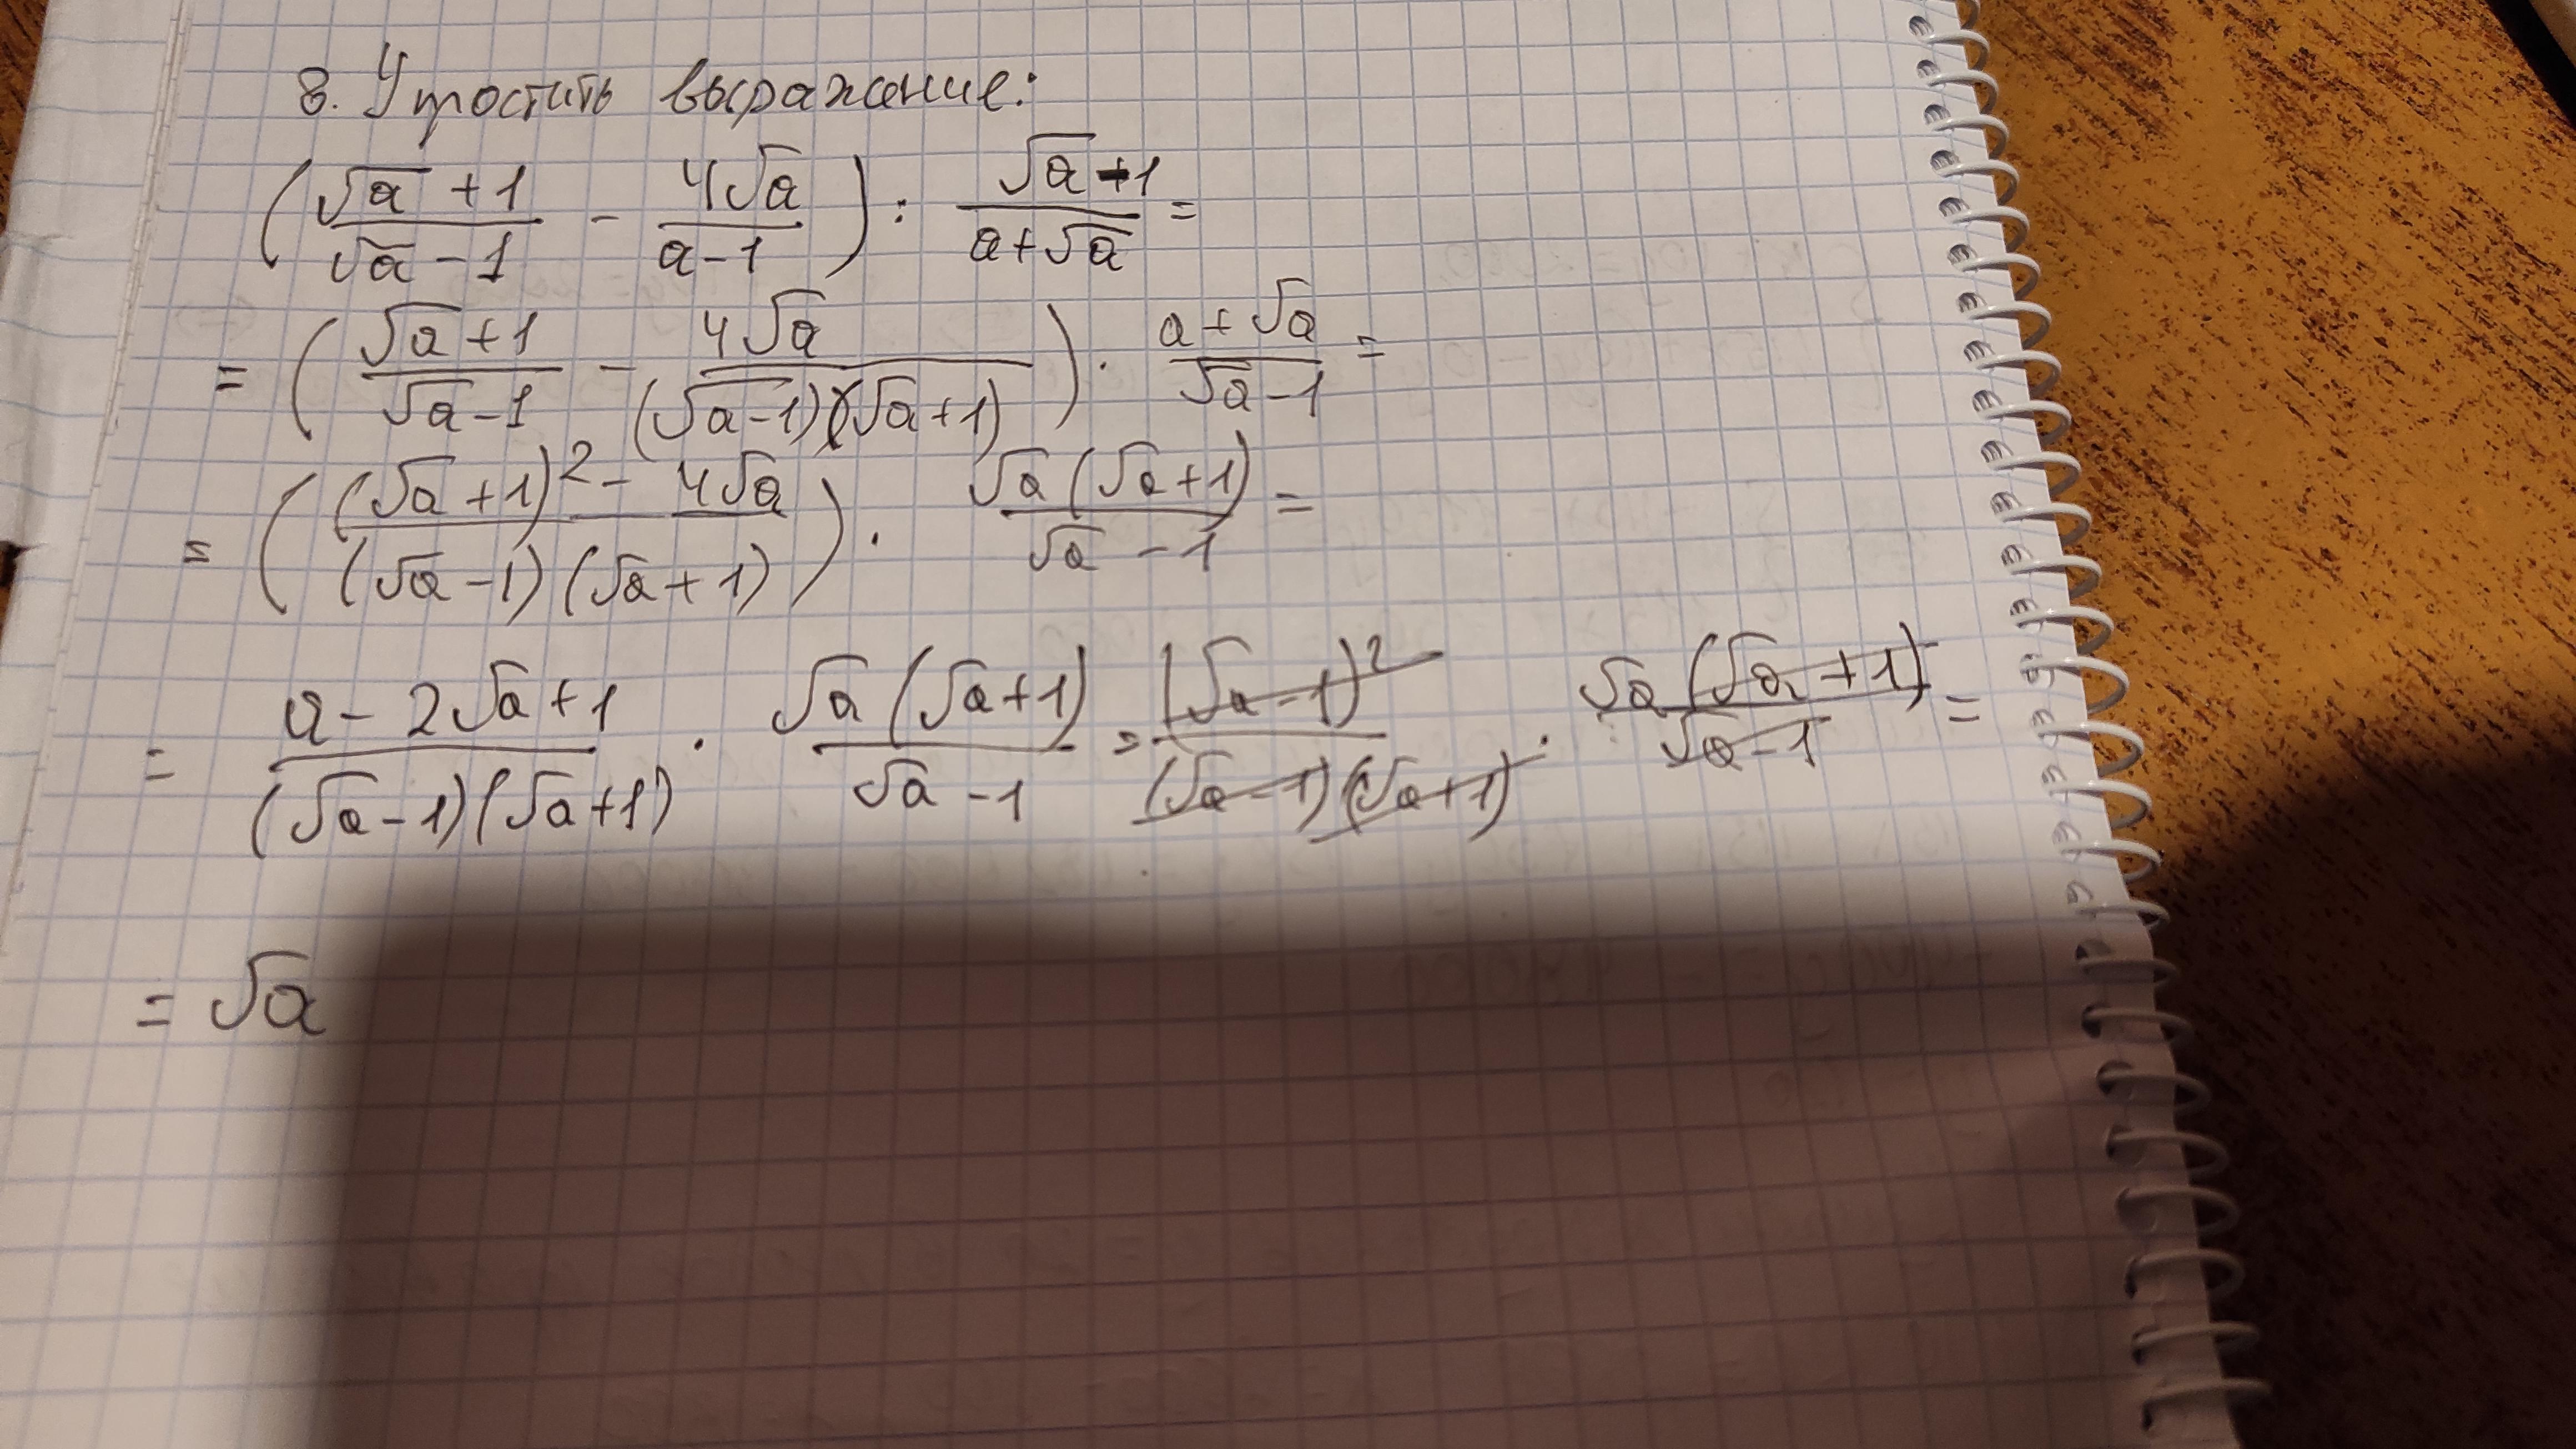 8. Упростить выражение:
( (√a + 1)/(√a - 1) - 4√a/(a - 1) ) : (√a - 1)/(a + √a) =
= ( (√a + 1)/(√a - 1) - 4√a/((√a - 1)(√a + 1)) ) · (a + √a)/(√a - 1) =
= ( ((√a + 1)² - 4√a)/((√a - 1)(√a + 1)) ) · √a(√a + 1)/(√a - 1) =
= (a - 2√a + 1)/((√a - 1)(√a + 1)) · √a(√a + 1)/(√a - 1) = (√a - 1)²/((√a - 1)(√a + 1)) · √a(√a + 1)/(√a - 1) =
= √a